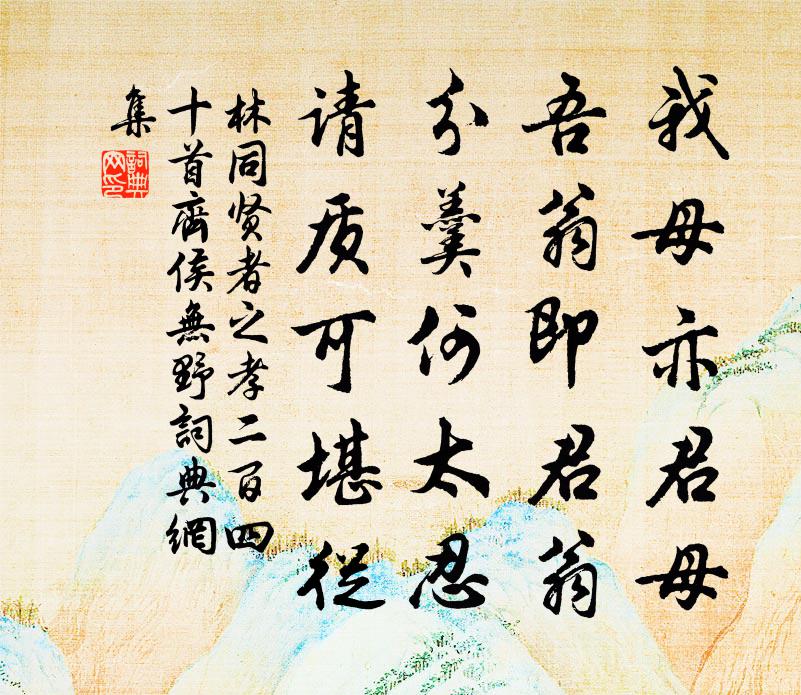 我母亦君母
吾翁即君翁
分羹何太忍
请质可堪从
林同贤者之孝二百四
十首齊侯無野詞典網
集
詞典
网印